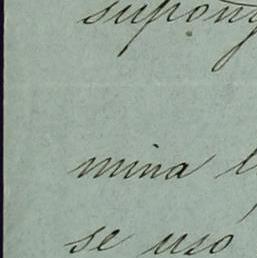 supong
mina l
se uso